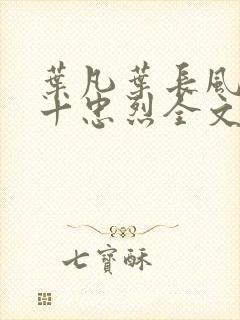 葉凡葉長風
十忠烈全文
七寶酥